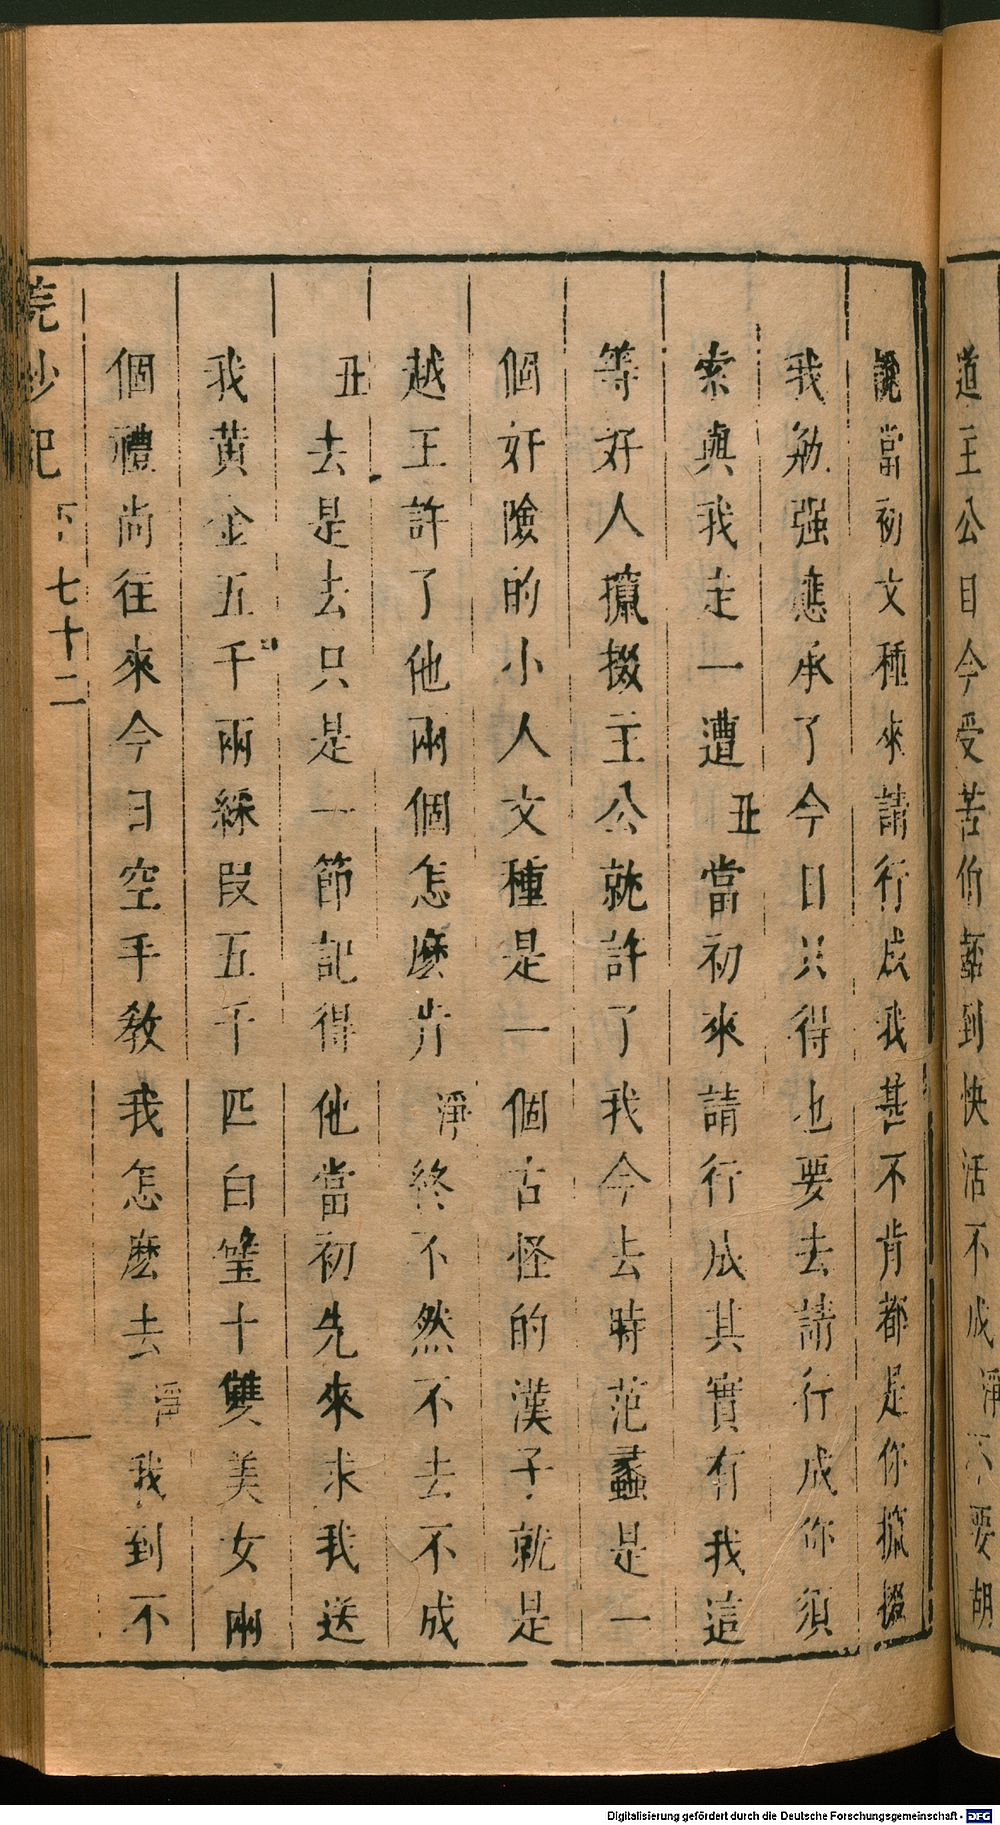 道主公目今受苦伯嚭到快活不成淨不要胡
說當初文種來請行成我甚不肯都是你攛掇
我勉强應承了今日只得也要去請行成你須
索與我走一遭丑當初來請行成其實有我這
等好人攛掇主公就許了我今去時范蠡是一
個奸險的小人文種是一個古怪的漢子就是
越王許了他兩個怎麽肯淨終不然不去不成
丑去是去只是一節記得他當初先來求我送
我黄金五千兩綵段五千匹白璧十雙美女兩
個禮尚往來今日空手教我怎麽去淨我到不
浣紗記 下 七十二
Digitalisierung gefördert durch die Deutsche Forschungsgemeinschaft - DFG